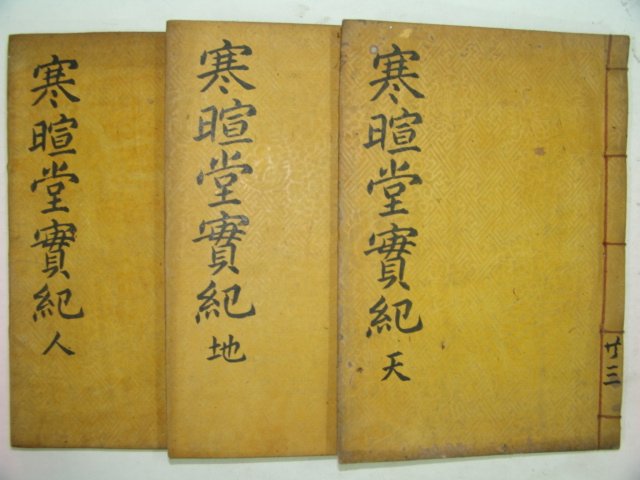 寒暄堂實紀 天
廿三
寒暄堂實紀 地
寒暄堂實紀 人